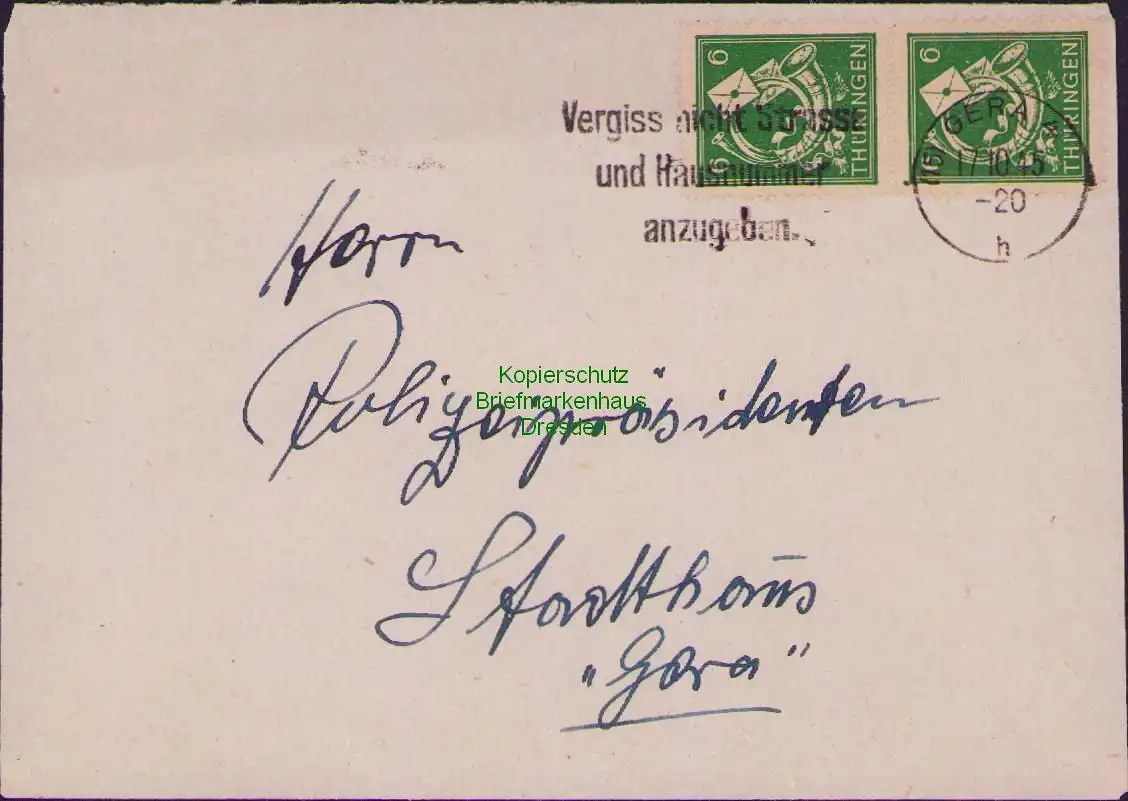 6 6 THÜRINGEN
6 THÜRINGEN
Vergiss nicht Strasse
und Hausnummer
anzugeben.
(16) GERA
17.10.45
-20
h
Herrn
Polizeipräsidenten
Stadthaus
„Gera"
Kopierschutz
Briefmarkenhaus
Dresden